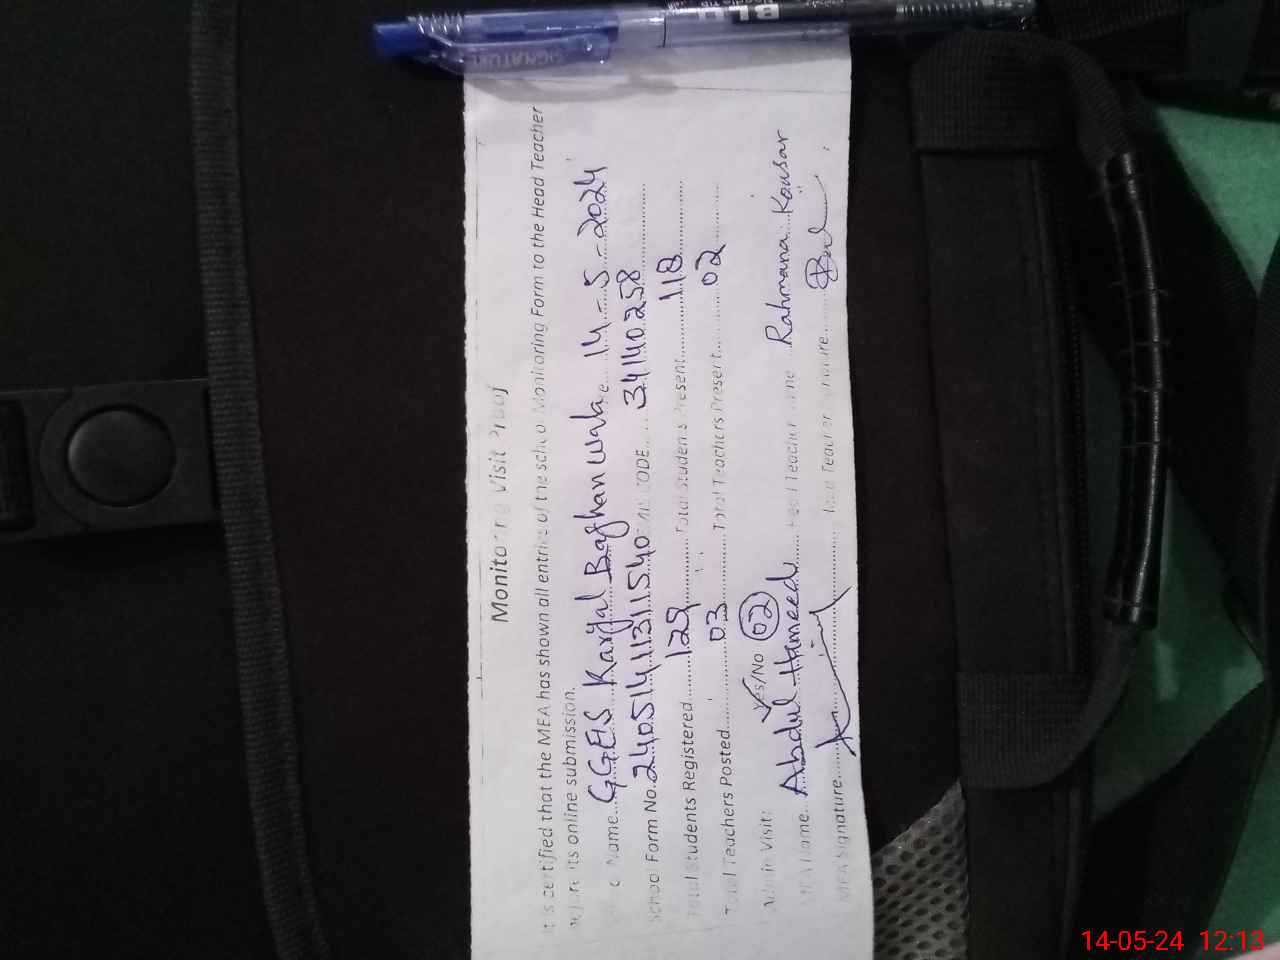 SIGNATURE
Monitoring Visit Proof
It is certified that the MEA has shown all entries of the school Monitoring Form to the Head Teacher
before its online submission.
Name....GGES Karyal Baghan Wala 14-5-2024
School Form No. 24051411311540 CODE...... 34140258
Total Students Registered......129........ Total Students Present..............118
Total Teachers Posted..........03........ Total Teachers Present..........02
Admin Visit: Yes/No 02
MEA Name...Abdul Hameed...... Head Teacher Name Rahmana Kousar
MEA Signature........ Head Teacher Signature......
14-05-24 12:13